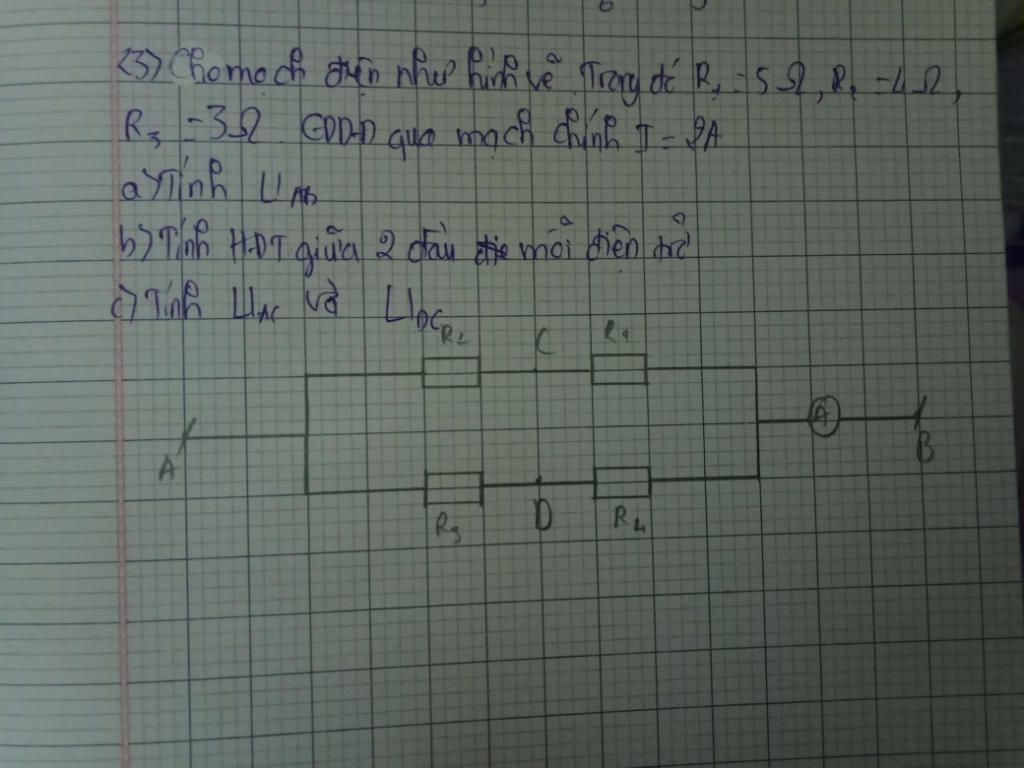 (3) Cho mạch điện như hình vẽ. Trong đó R₁ = 5Ω, R₂ = 4Ω,
R₃ = 3Ω CĐDĐ qua mạch chính I = 2A
a) Tính U AB
b) Tính HĐT giữa 2 đầu mỗi điện trở
c) Tính U AC và U DC
R₂ C R₁
A A B
R₃ D R₄